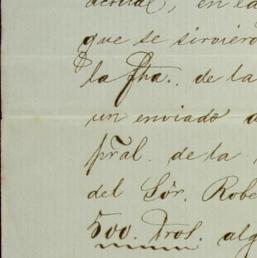 actual, en la
que se sirviero
la fha. de la
un enviado a
pral. de la
del Sór. Robe
500. Dros. alg